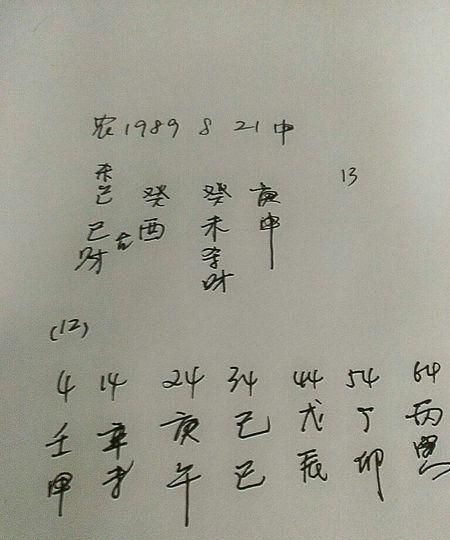 农1989 8 21 中
杀
己 癸 癸 庚 13
巳 酉 未 申
财 杀
财
(12)
4 14 24 34 44 54 64
壬 辛 庚 己 戊 丁 丙
申 未 午 巳 辰 卯 寅